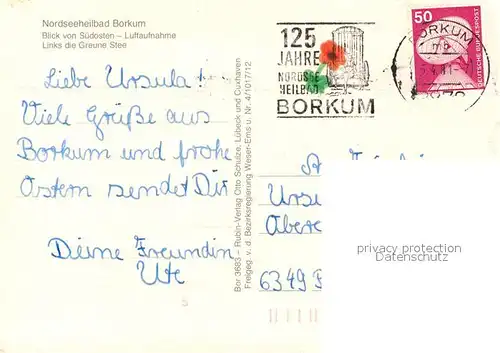 Nordseeheilbad Borkum
Blick von Südosten – Luftaufnahme
Links die Greune Stee
Liebe Ursula!
Viele Grüße aus
Borkum und frohe
Ostern sendet Dir
Deine Freundin
Ute
Bor 3683 – Rubin-Verlag Otto Schulze, Lübeck und Cuxhaven
Freigeg. v. d. Bezirksregierung Weser-Ems u. Nr. 4/1017/12
125
JAHRE
NORDSEE
HEILBAD
BORKUM
50
DEUTSCHE BUNDESPOST
BORKUM
6349
privacy protection
Datenschutz